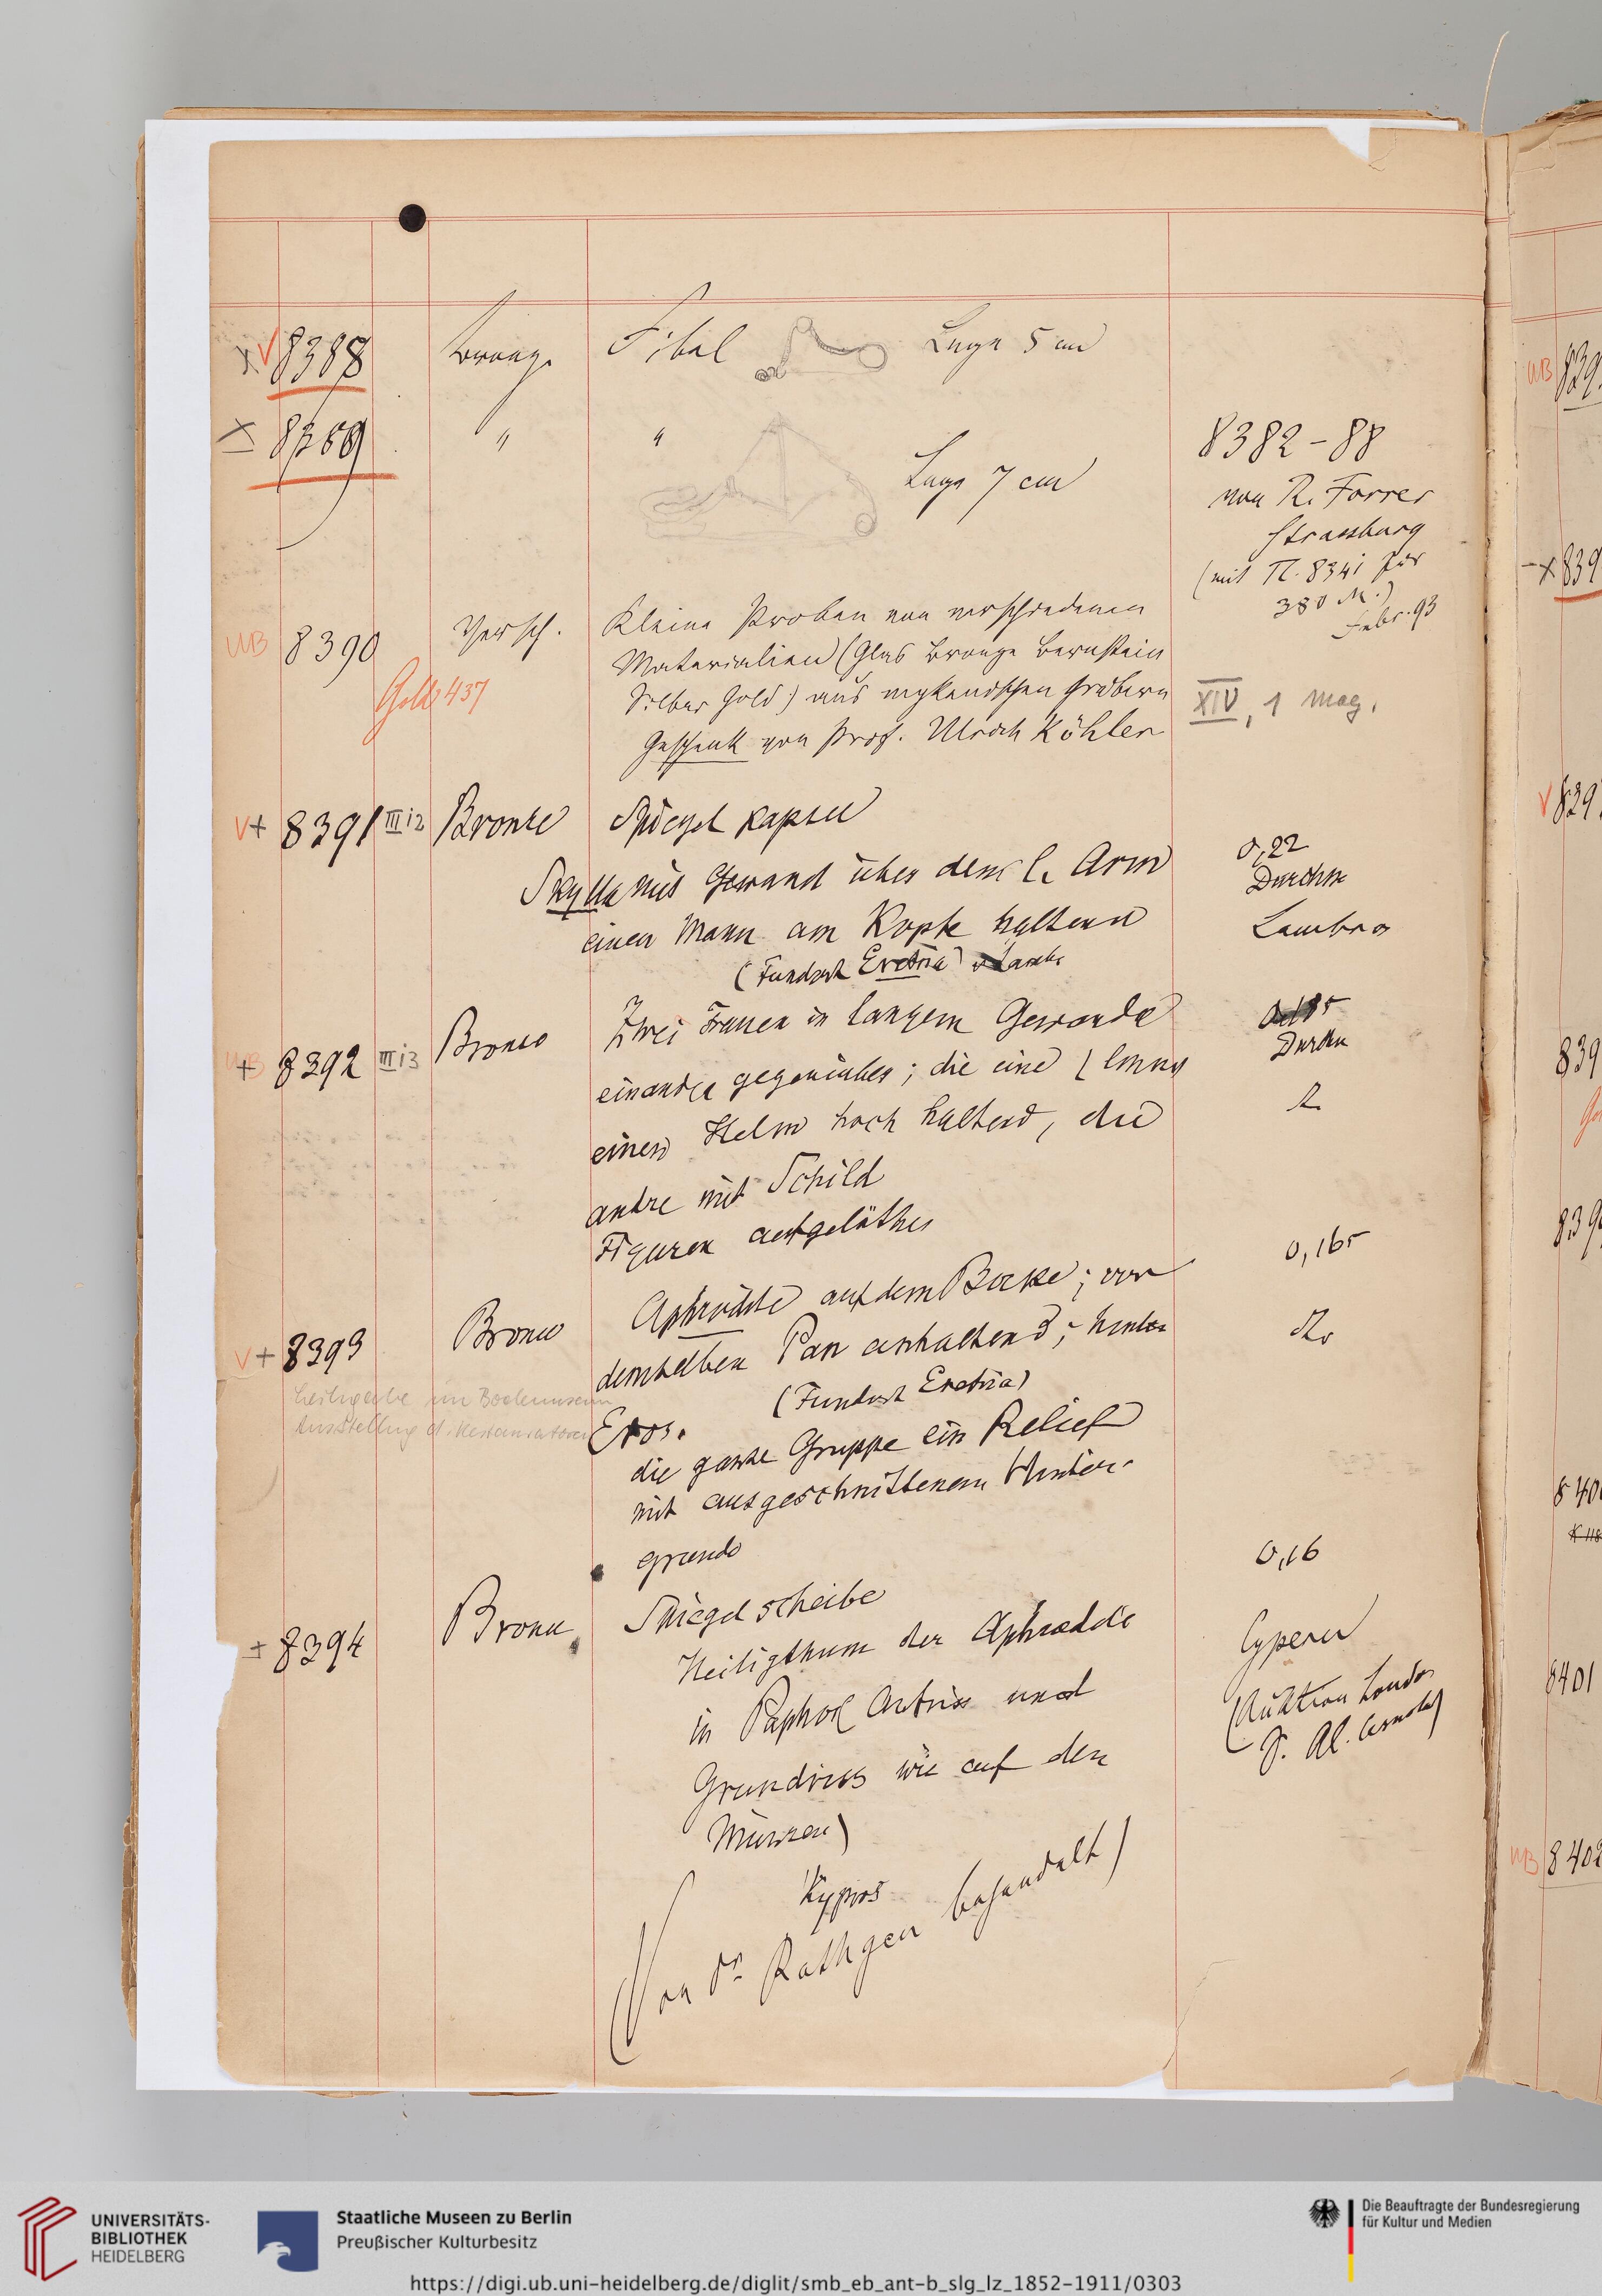 x V 8388 Bronze Fibel Länge 5 cm
x 8389 " " Länge 7 cm
8382-88
von R. Forrer
Strassburg
(mit TC. 8341 für
380 M.)
Febr. 93
WB 8390 Versch. Kleine Proben von verschiedenen
Materialien (Glas Bronze Bernstein
Silber Gold) aus mykenischen Gräbern
Geschenk von Prof. Ulrich Köhler
Gold 437
XIV, 1 Mag.
V + 8391 III i2 Bronze Spiegelkapsel
Skylla mit Gewand über dem l. Arm
einen Mann am Kopfe haltend
(Fundort Eretria)
0,22
Durchm
Lambros
WB + 8392 III i3 Bronze Zwei Frauen in langem Gewande
einander gegenüber; die eine
einen Helm hoch haltend, die
andre mit Schild
Figuren aufgelöthet
Durchm
V + 8393 Bronze Aphrodite auf dem Bocke; vor
demselben Pan anhaltend; hinter
(Fundort Eretria)
Eros.
die ganze Gruppe ein Relief
mit ausgeschnittenem Hinter-
grunde
0,165
Leihgabe im Bodemuseum
Ausstellung d. Restauratoren
+ 8394 Bronze Spiegelscheibe
Heiligthum der Aphrodite
in Paphos Aufriss und
Grundriss wie auf den
Münzen)
Kypros
(Von Dr. Rathgen behandelt)
0,16
Cypern
(Auktion London
WB 839
x 839
V 839
839
839
840
8401
WB 8402
UNIVERSITÄTS-
BIBLIOTHEK
HEIDELBERG
Staatliche Museen zu Berlin
Preußischer Kulturbesitz
Die Beauftragte der Bundesregierung
für Kultur und Medien
https://digi.ub.uni-heidelberg.de/diglit/smb_eb_ant-b_slg_lz_1852-1911/0303